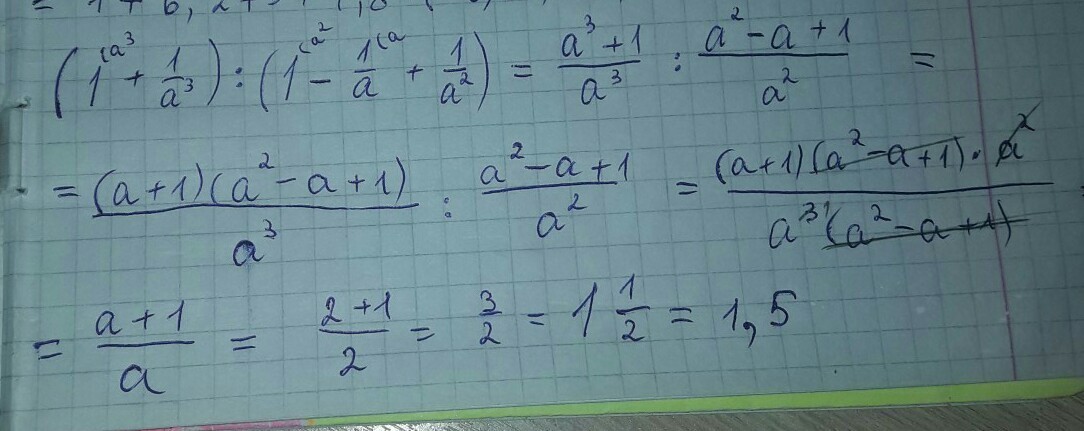 (1^(a³ + 1/a³) : (1^(a² - 1/a^(a + 1/a²) = (a³ + 1)/a³ : (a² - a + 1)/a² =
= (a + 1)(a² - a + 1)/a³ : (a² - a + 1)/a² = (a + 1)(a² - a + 1) · a²/a³¹(a² - a + 1)
= (a + 1)/a = (2 + 1)/2 = 3/2 = 1 1/2 = 1,5